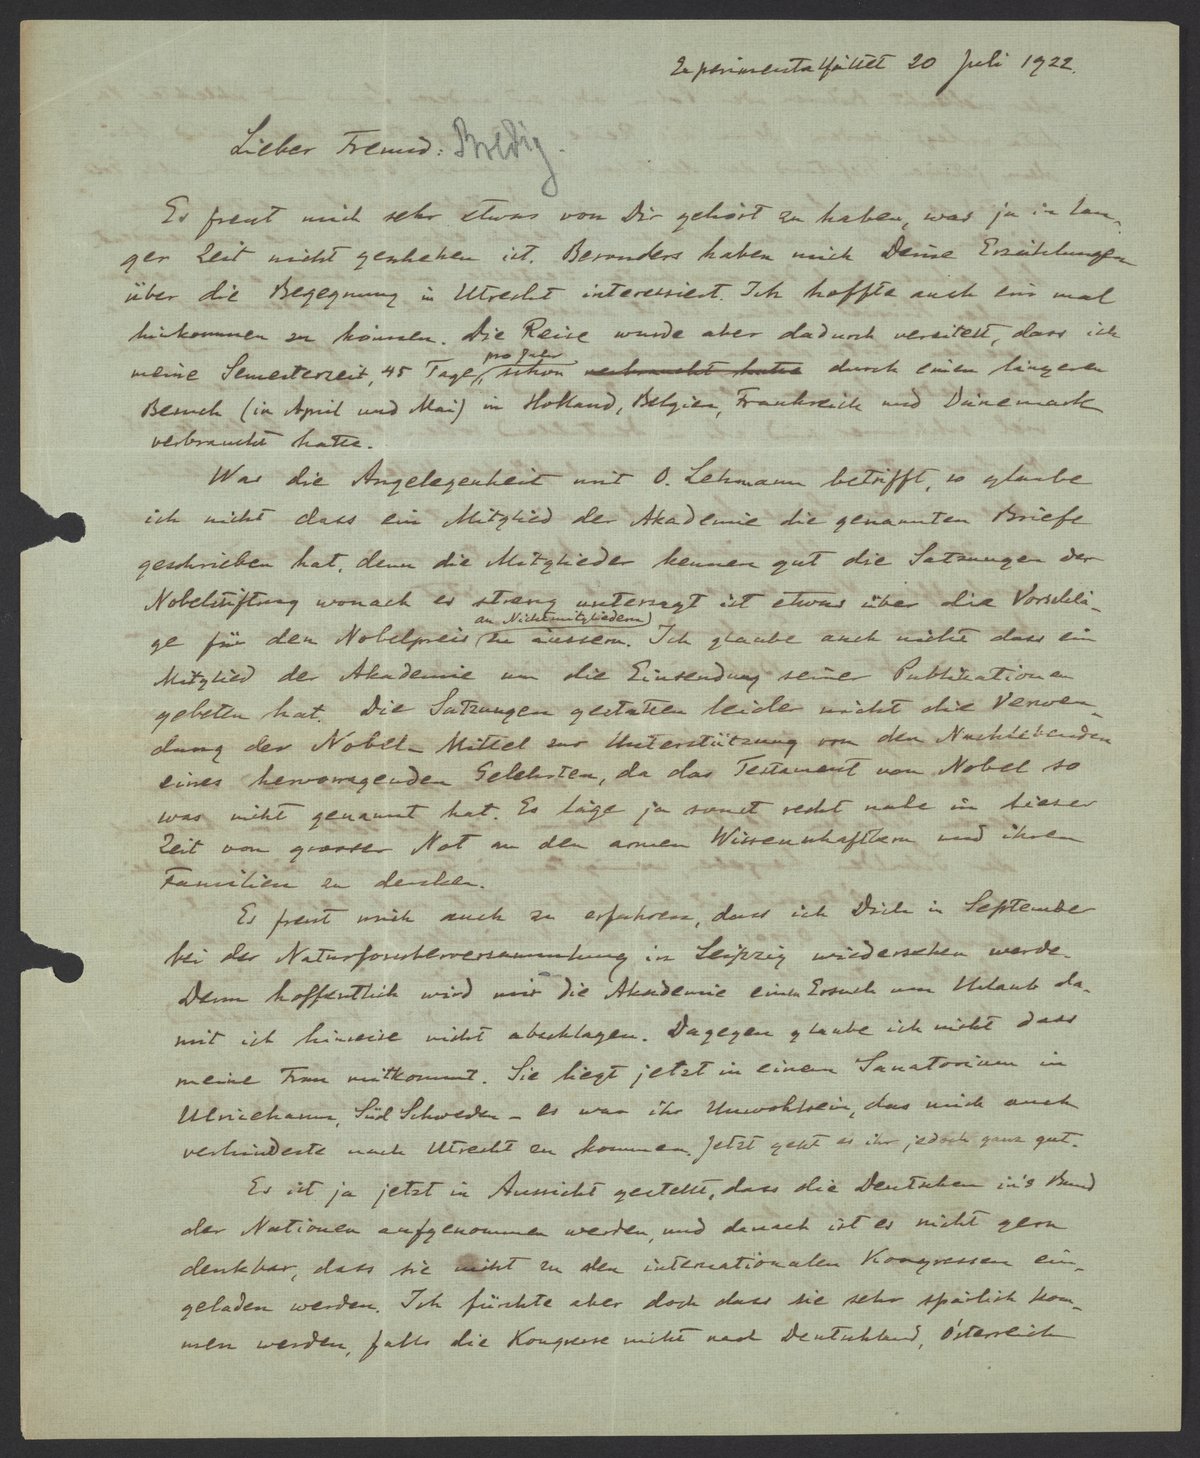 Experimentalfältet 20 Juli 1922.
Lieber Freund: Bredig.
Es freut mich sehr etwas von Dir gehört zu haben, was ja in lan-
ger Zeit nicht geschehen ist. Besonders haben mich Deine Erzählungen
über die Begegnung in Utrecht interessiert. Ich hoffte auch ein mal
hinkommen zu können. Die Reise wurde aber dadurch vereitelt, dass ich
meine Semesterzeit, 45 Tage pro Jahr, schon verbraucht hatte durch einen längeren
Besuch (in April und Mai) in Holland, Belgien, Frankreich und Dänemark
verbraucht hatte.
Was die Angelegenheit mit O. Lehmann betrifft, so glaube
ich nicht dass ein Mitglied der Akademie die genannten Briefe
geschrieben hat, denn die Mitglieder kennen gut die Satzungen der
Nobelstiftung wonach es streng untersagt ist etwas über die Vorschlä-
ge für den Nobelpreis (an Nichtmitgliedern) zu äussern. Ich glaube auch nicht dass ein
Mitglied der Akademie um die Einsendung seiner Publikationen
gebeten hat. Die Satzungen gestatten leider nicht die Verwen-
dung der Nobel-Mittel zur Unterstützung von den Nachlebenden
eines hervorragenden Gelehrten, da das Testament von Nobel so
was nicht genannt hat. Es läge ja sonst recht nahe in dieser
Zeit von grosser Not an den armen Wissenschaftlern und ihren
Familien zu denken.
Es freut mich auch zu erfahren, dass ich Dich in September
bei der Naturforscherversammlung in Leipzig wiedersehen werde.
Denn hoffentlich wird mir die Akademie einen Ersuch um Urlaub da-
mit ich hinreise nicht abschlagen. Dagegen glaube ich nicht dass
meine Frau mitkommt. Sie liegt jetzt in einem Sanatorium in
Ulricehamn, Süd Schweden - es war ihr Unwohlsein, das mich auch
verhinderte nach Utrecht zu kommen. Jetzt geht es ihr jedoch ganz gut.
Es ist ja jetzt in Aussicht gestellt, dass die Deutschen in's Bund
der Nationen aufgenommen werden, und danach ist es nicht gern
denkbar, dass sie nicht zu den internationalen Kongressen ein-
geladen werden. Ich fürchte aber doch dass sie sehr spärlich kom-
men werden, falls die Kongresse nicht nach Deutschland, Österreich